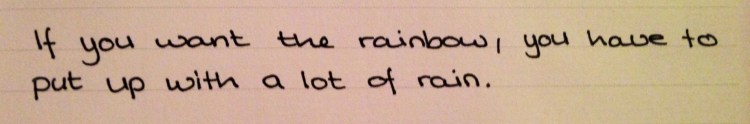 If you want the rainbow, you have to
put up with a lot of rain.